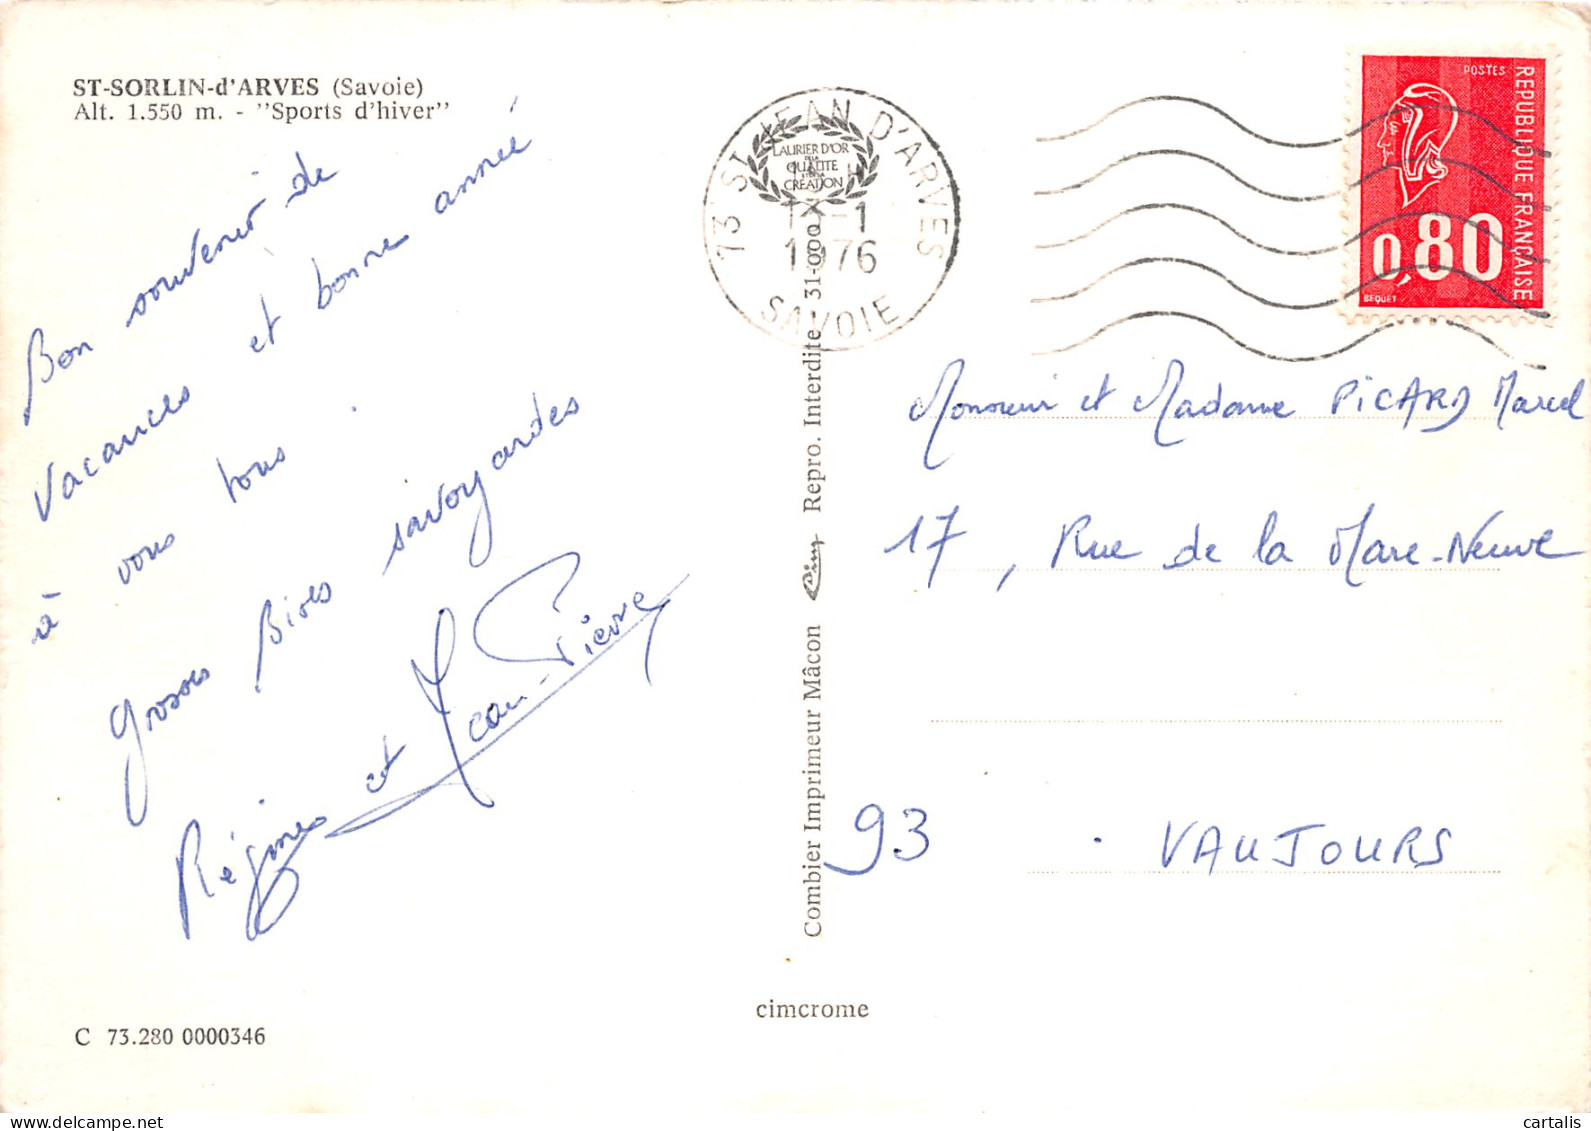 ST-SORLIN-d'ARVES (Savoie)
Alt. 1.550 m. - "Sports d'hiver"
Bon souvenir de
vacances et bonne année
à vous tous.
Grosses Bises savoyardes
Régine et Jean-Pierre
C 73.280 0000346
Combier Imprimeur Mâcon Cim Repro. Interdite 31-000
cimcrome
LAURIER D'OR
DE LA
QUALITE
CREATION
73 ST JEAN D'ARVES
-1
1976
SAVOIE
POSTES
REPUBLIQUE FRANÇAISE
0,80
BEQUET
Monsieur et Madame PICARD Marcel
17, Rue de la Mare-Neuve
93 . VAUJOURS
delcampe.net
cartalis